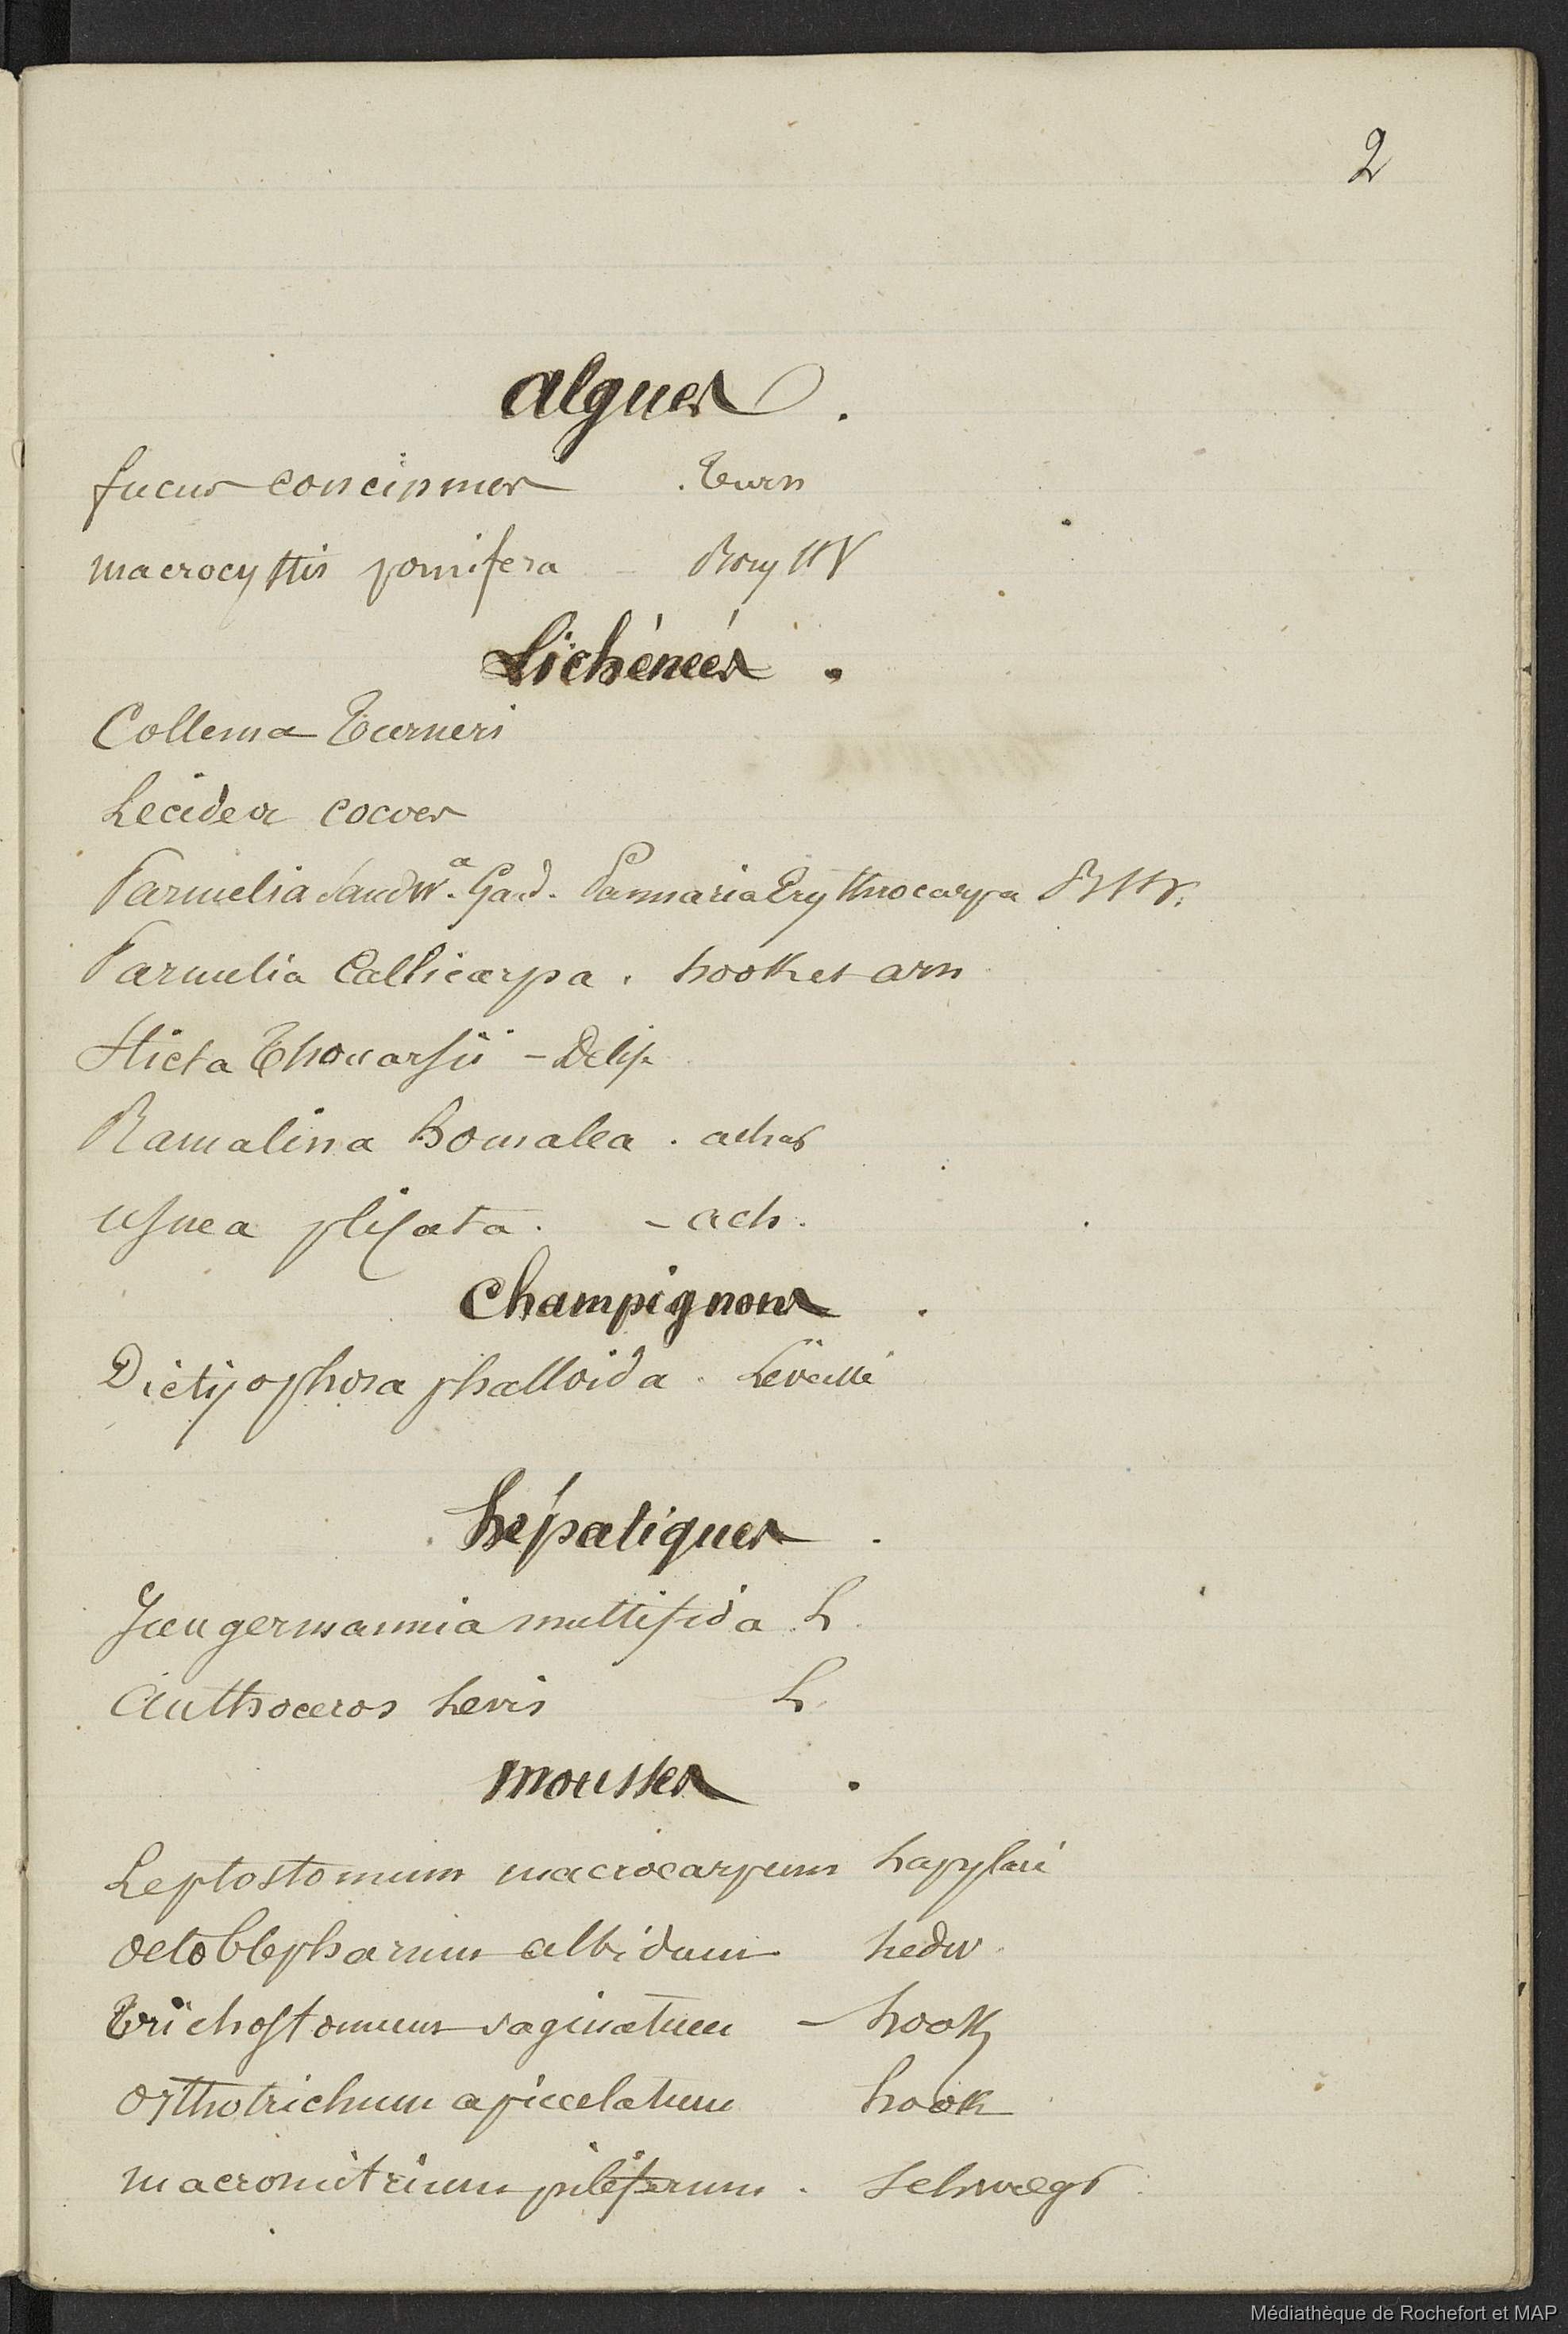 2
algues .
fucus concinmes . Turn
macrocystis pomifera - Bory StV
Lichénées .
Collema Turneri
Lecidea cocoes
Parmelia Sandw.a Gaud. Pannaria Erythrocarpa BStV.
Parmelia Callicarpa . hook et arn
Sticta Thouarsii - Delis
Ramalina homalea . achar
usnea plicata . - ach.
Champignons .
Dictyophora phalloida . Léveillé
hépatiques .
Jungermannia multifida L.
Anthoceros Levis L.
mousses .
Leptostomum macrocarpum
octoblepharum albidum hedw.
Trichostomum vaginatum - hook
orthotrichum apiculatum hook
macromitrium piliferum . Schwægr
Médiathèque de Rochefort et MAP